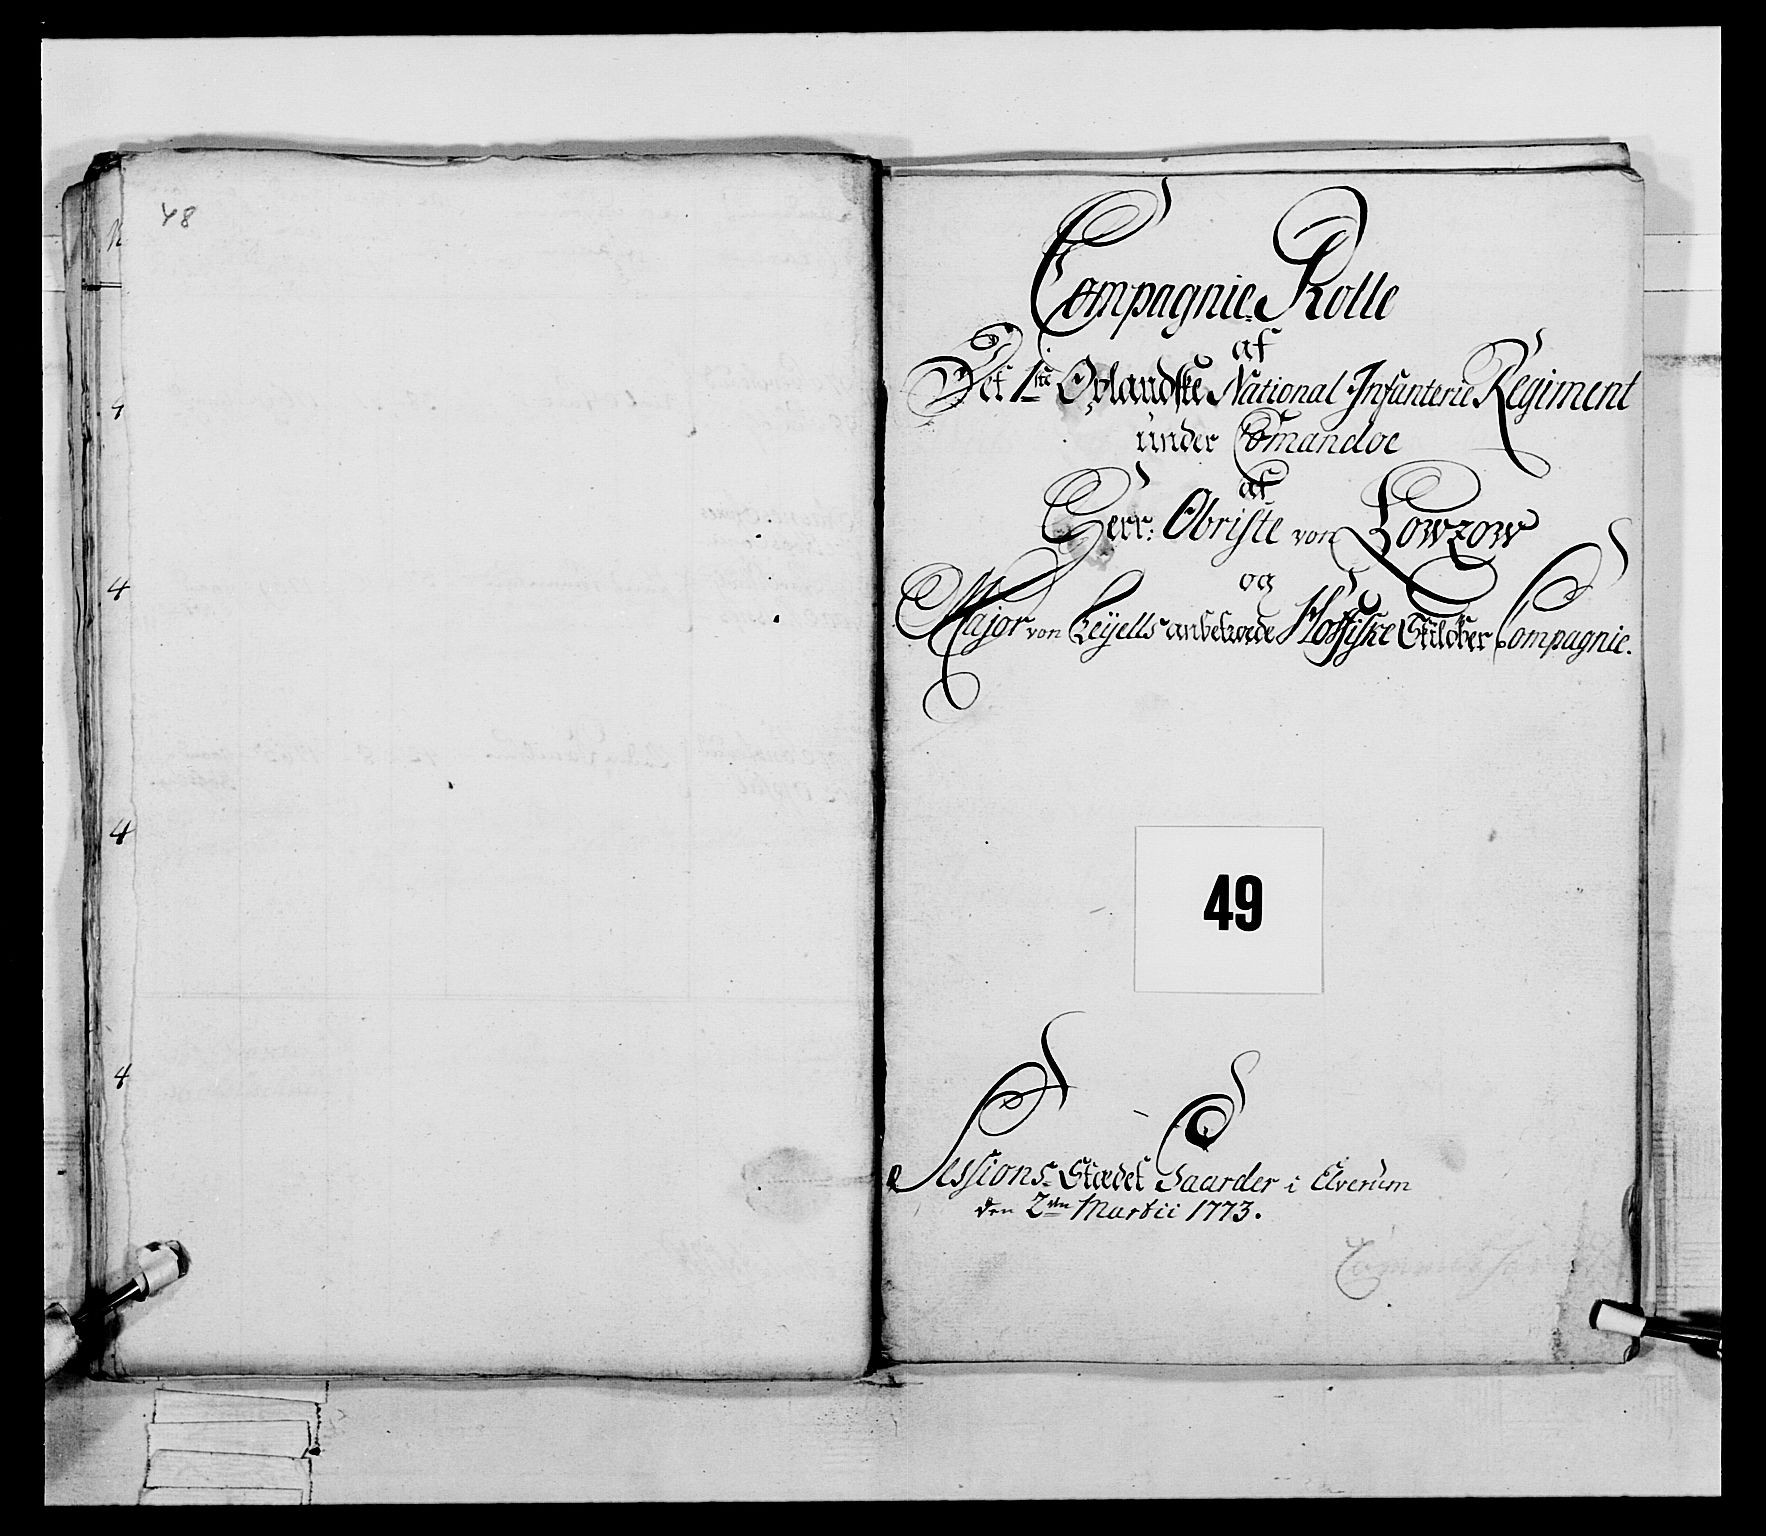 48
4
4
4
4
Compagnie-Rolle
af
Det 1ste Oplandske National Infanterie Regiment
under Comandoe
af
Herr: Obriste von Lowzow
og
Major von Zeÿells anbetroede Skilober Compagnie.
49
Sessions-Stædet Gaarder i Elverum
den 2den Martii 1773.